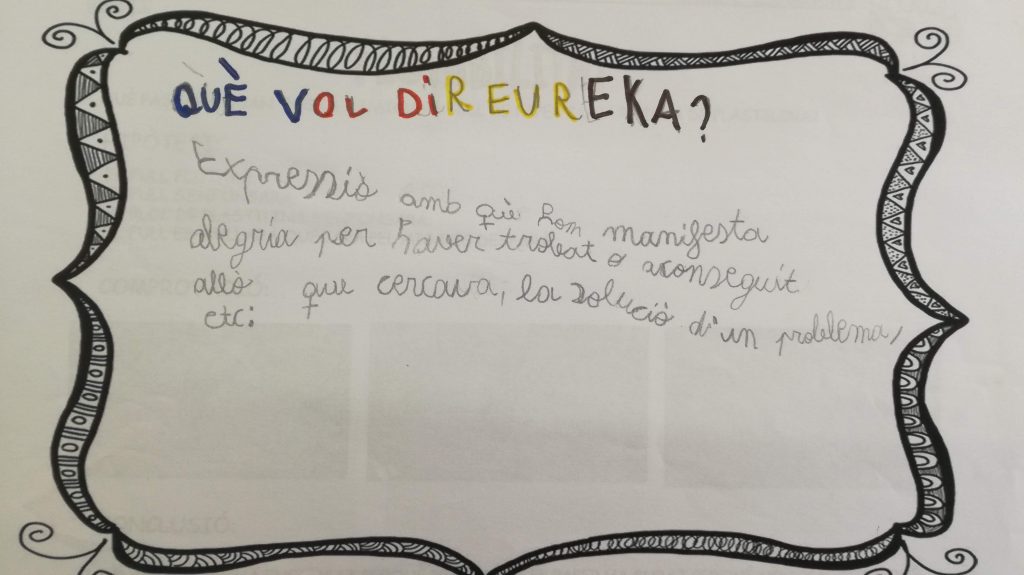 QUÈ VOL DiR EUREKA?
Expressiò amb què hom manifesta
alegria per haver trobat o aconseguit
allò que cercava, la soluciò d'un problema,
etc: